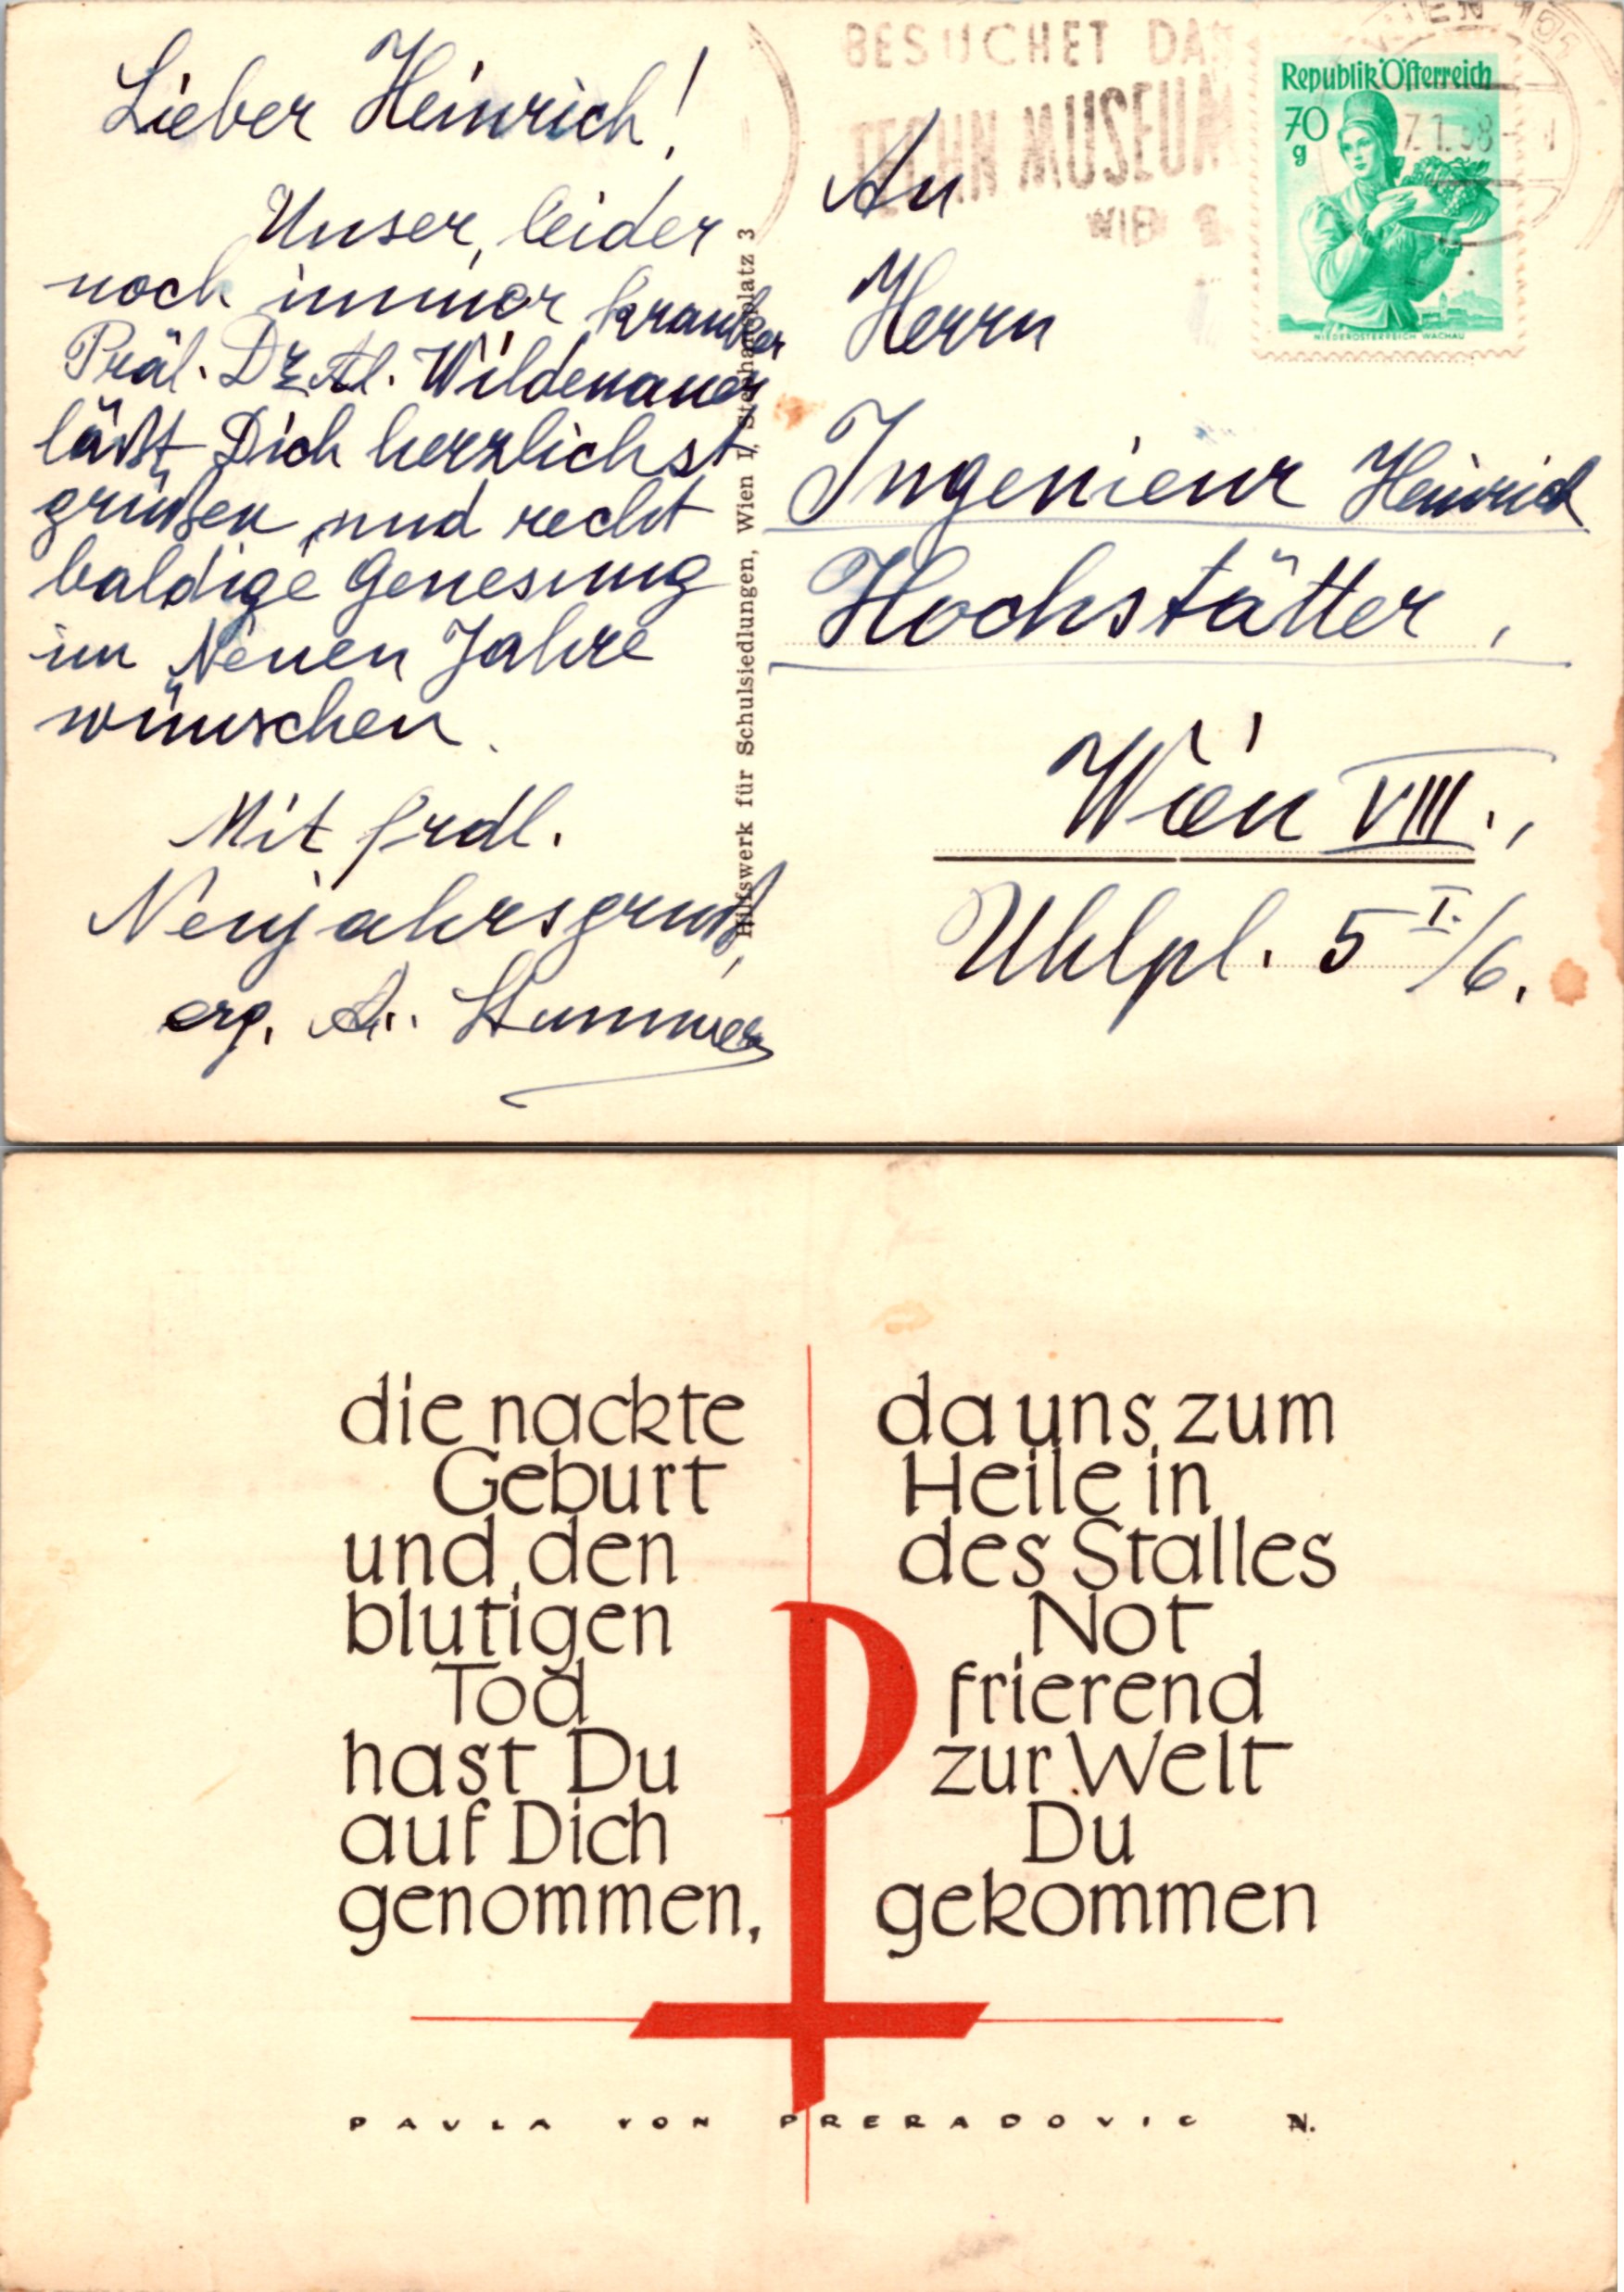 Lieber Heinrich!
Unser, leider
noch immer kranker
Präl. Dr. Al. Wildenauer
läßt Dich herzlichst
grüßen und recht
baldige Genesung
im Neuen Jahre
wünschen.
Mit frdl.
Neujahrsgruß,
erg. A. Stummer
Hilfswerk für Schulsiedlungen, Wien I, Stephansplatz 3
BESUCHET DAS
TECHN MUSEUM
WIEN
WIEN 101
7.1.58
Republik Österreich
70
g
NIEDERÖSTERREICH WACHAU
An
Herrn
Ingenieur Heinrich
Hochstätter,
Wien VIII.,
Uhlpl. 5 I./6.
die nackte
Geburt
und den
blutigen
Tod
hast Du
auf Dich
genommen,
da uns zum
Heile in
des Stalles
Not
frierend
zur Welt
Du
gekommen
PAULA VON PRERADOVIC N.